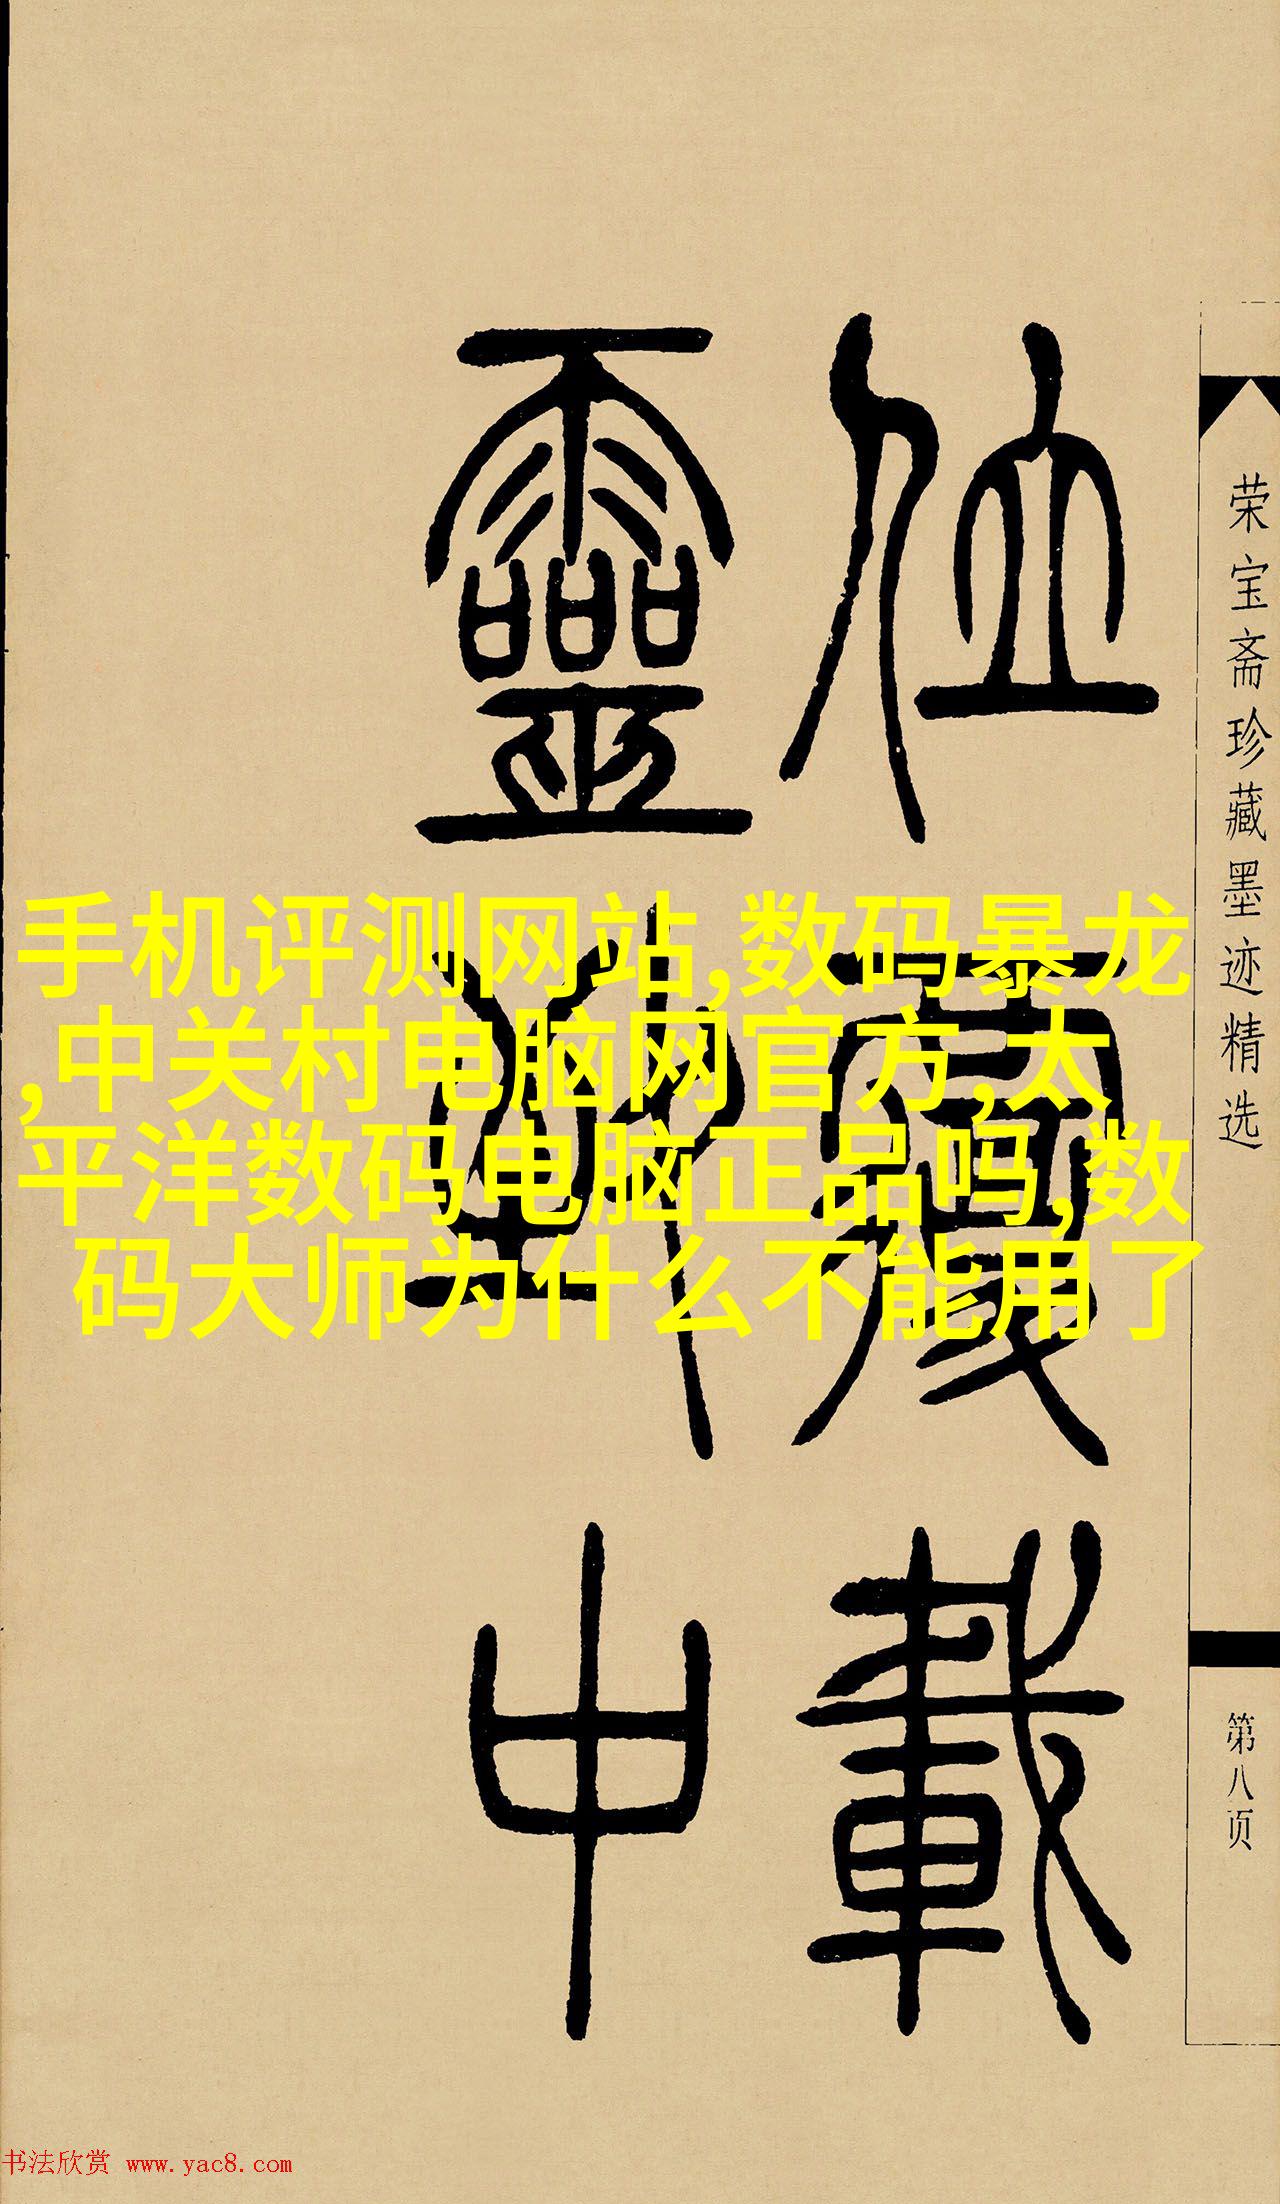 手机评测网站,数码暴龙
,中关村电脑网官方,太
平洋数码电脑正品吗,数
码大师为什么不能用了
荣宝斋珍藏墨迹精选
第八页
位覆載
靈中
书法欣赏 www.yac8.com